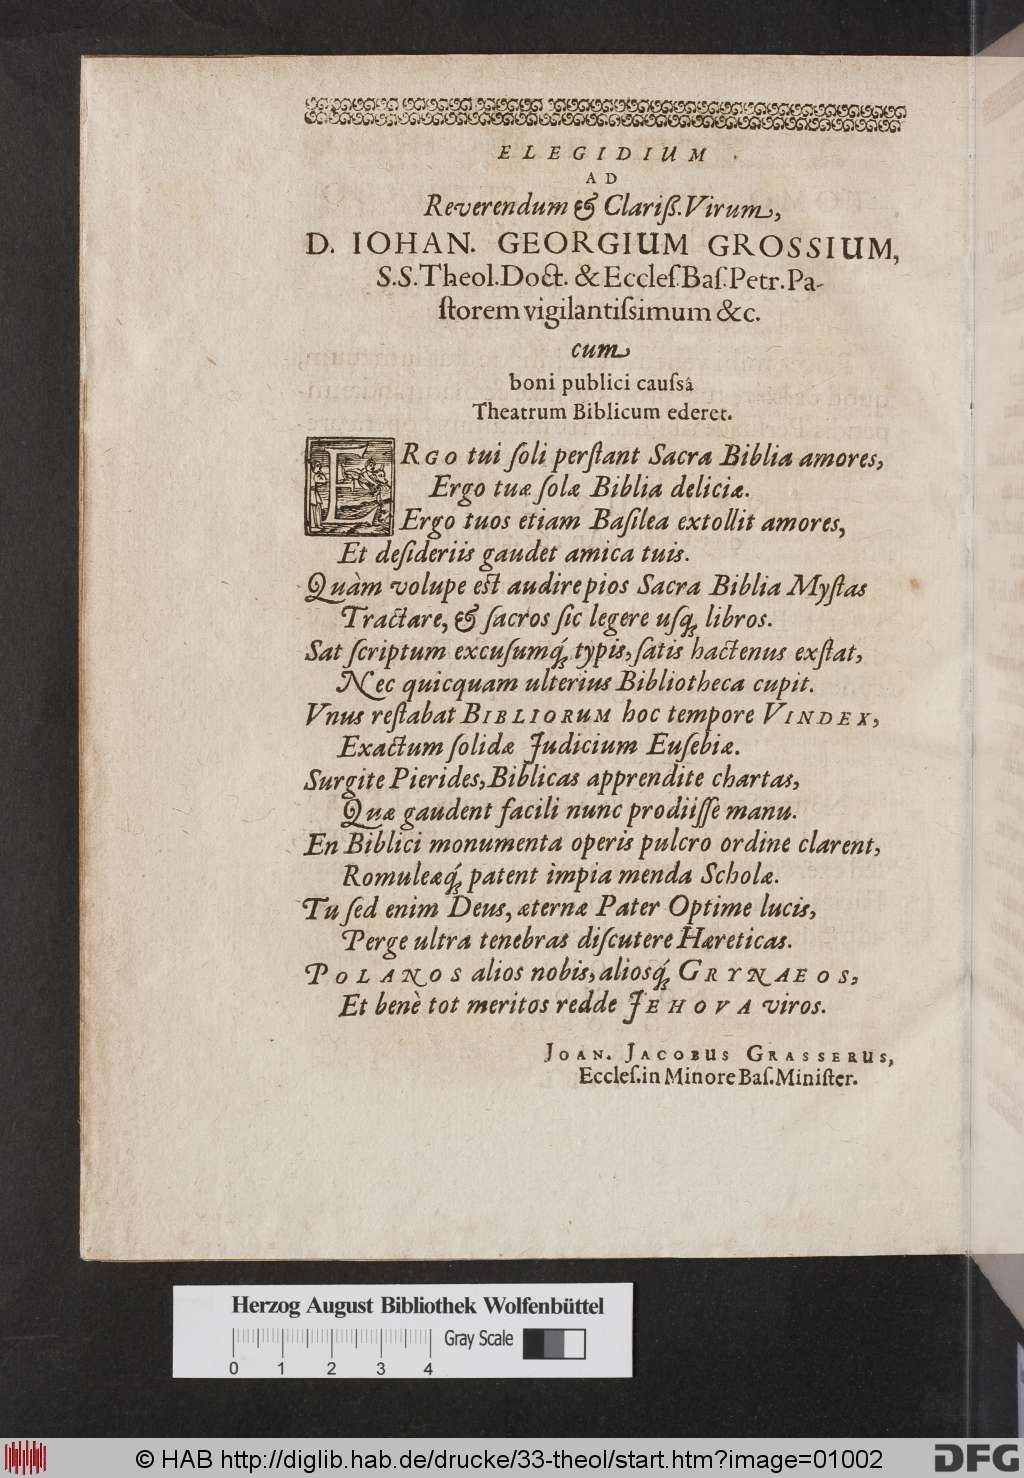 ELEGIDIUM
AD
Reverendum & Clariß. Virum,
D. IOHAN. GEORGIUM GROSSIUM,
S.S. Theol. Doct. & Eccleſ. Baſ. Petr. Pa-
ſtorem vigilantiſsimum &c.
cum
boni publici cauſsâ
Theatrum Biblicum ederet.
ERGO tui ſoli perſtant Sacra Biblia amores,
Ergo tuæ ſolæ Biblia deliciæ.
Ergo tuos etiam Baſilea extollit amores,
Et deſideriis gaudet amica tuis.
Quàm volupe est audire pios Sacra Biblia Myſtas
Tractare, & ſacros ſic legere uſq́ꝫ libros.
Sat ſcriptum excuſumq́ꝫ typis, ſatis hactenus exſtat,
Nec quicquam ulterius Bibliotheca cupit.
Vnus reſtabat BIBLIORUM hoc tempore VINDEX,
Exactum ſolidæ Judicium Euſebiæ.
Surgite Pierides, Biblicas apprendite chartas,
Quæ gaudent facili nunc prodiiſſe manu.
En Biblici monumenta operis pulcro ordine clarent,
Romuleæq́ꝫ patent impia menda Scholæ.
Tu ſed enim Deus, æternæ Pater Optime lucis,
Perge ultra tenebras diſcutere Hæreticas.
POLANOS alios nobis, aliosq́ꝫ GRYNAEOS,
Et benè tot meritos redde JEHOVA viros.
JOAN. JACOBUS GRASSERUS,
Eccleſ. in Minore Baſ. Miniſter.
Herzog August Bibliothek Wolfenbüttel
Gray Scale
0 1 2 3 4
© HAB http://diglib.hab.de/drucke/33-theol/start.htm?image=01002
DFG